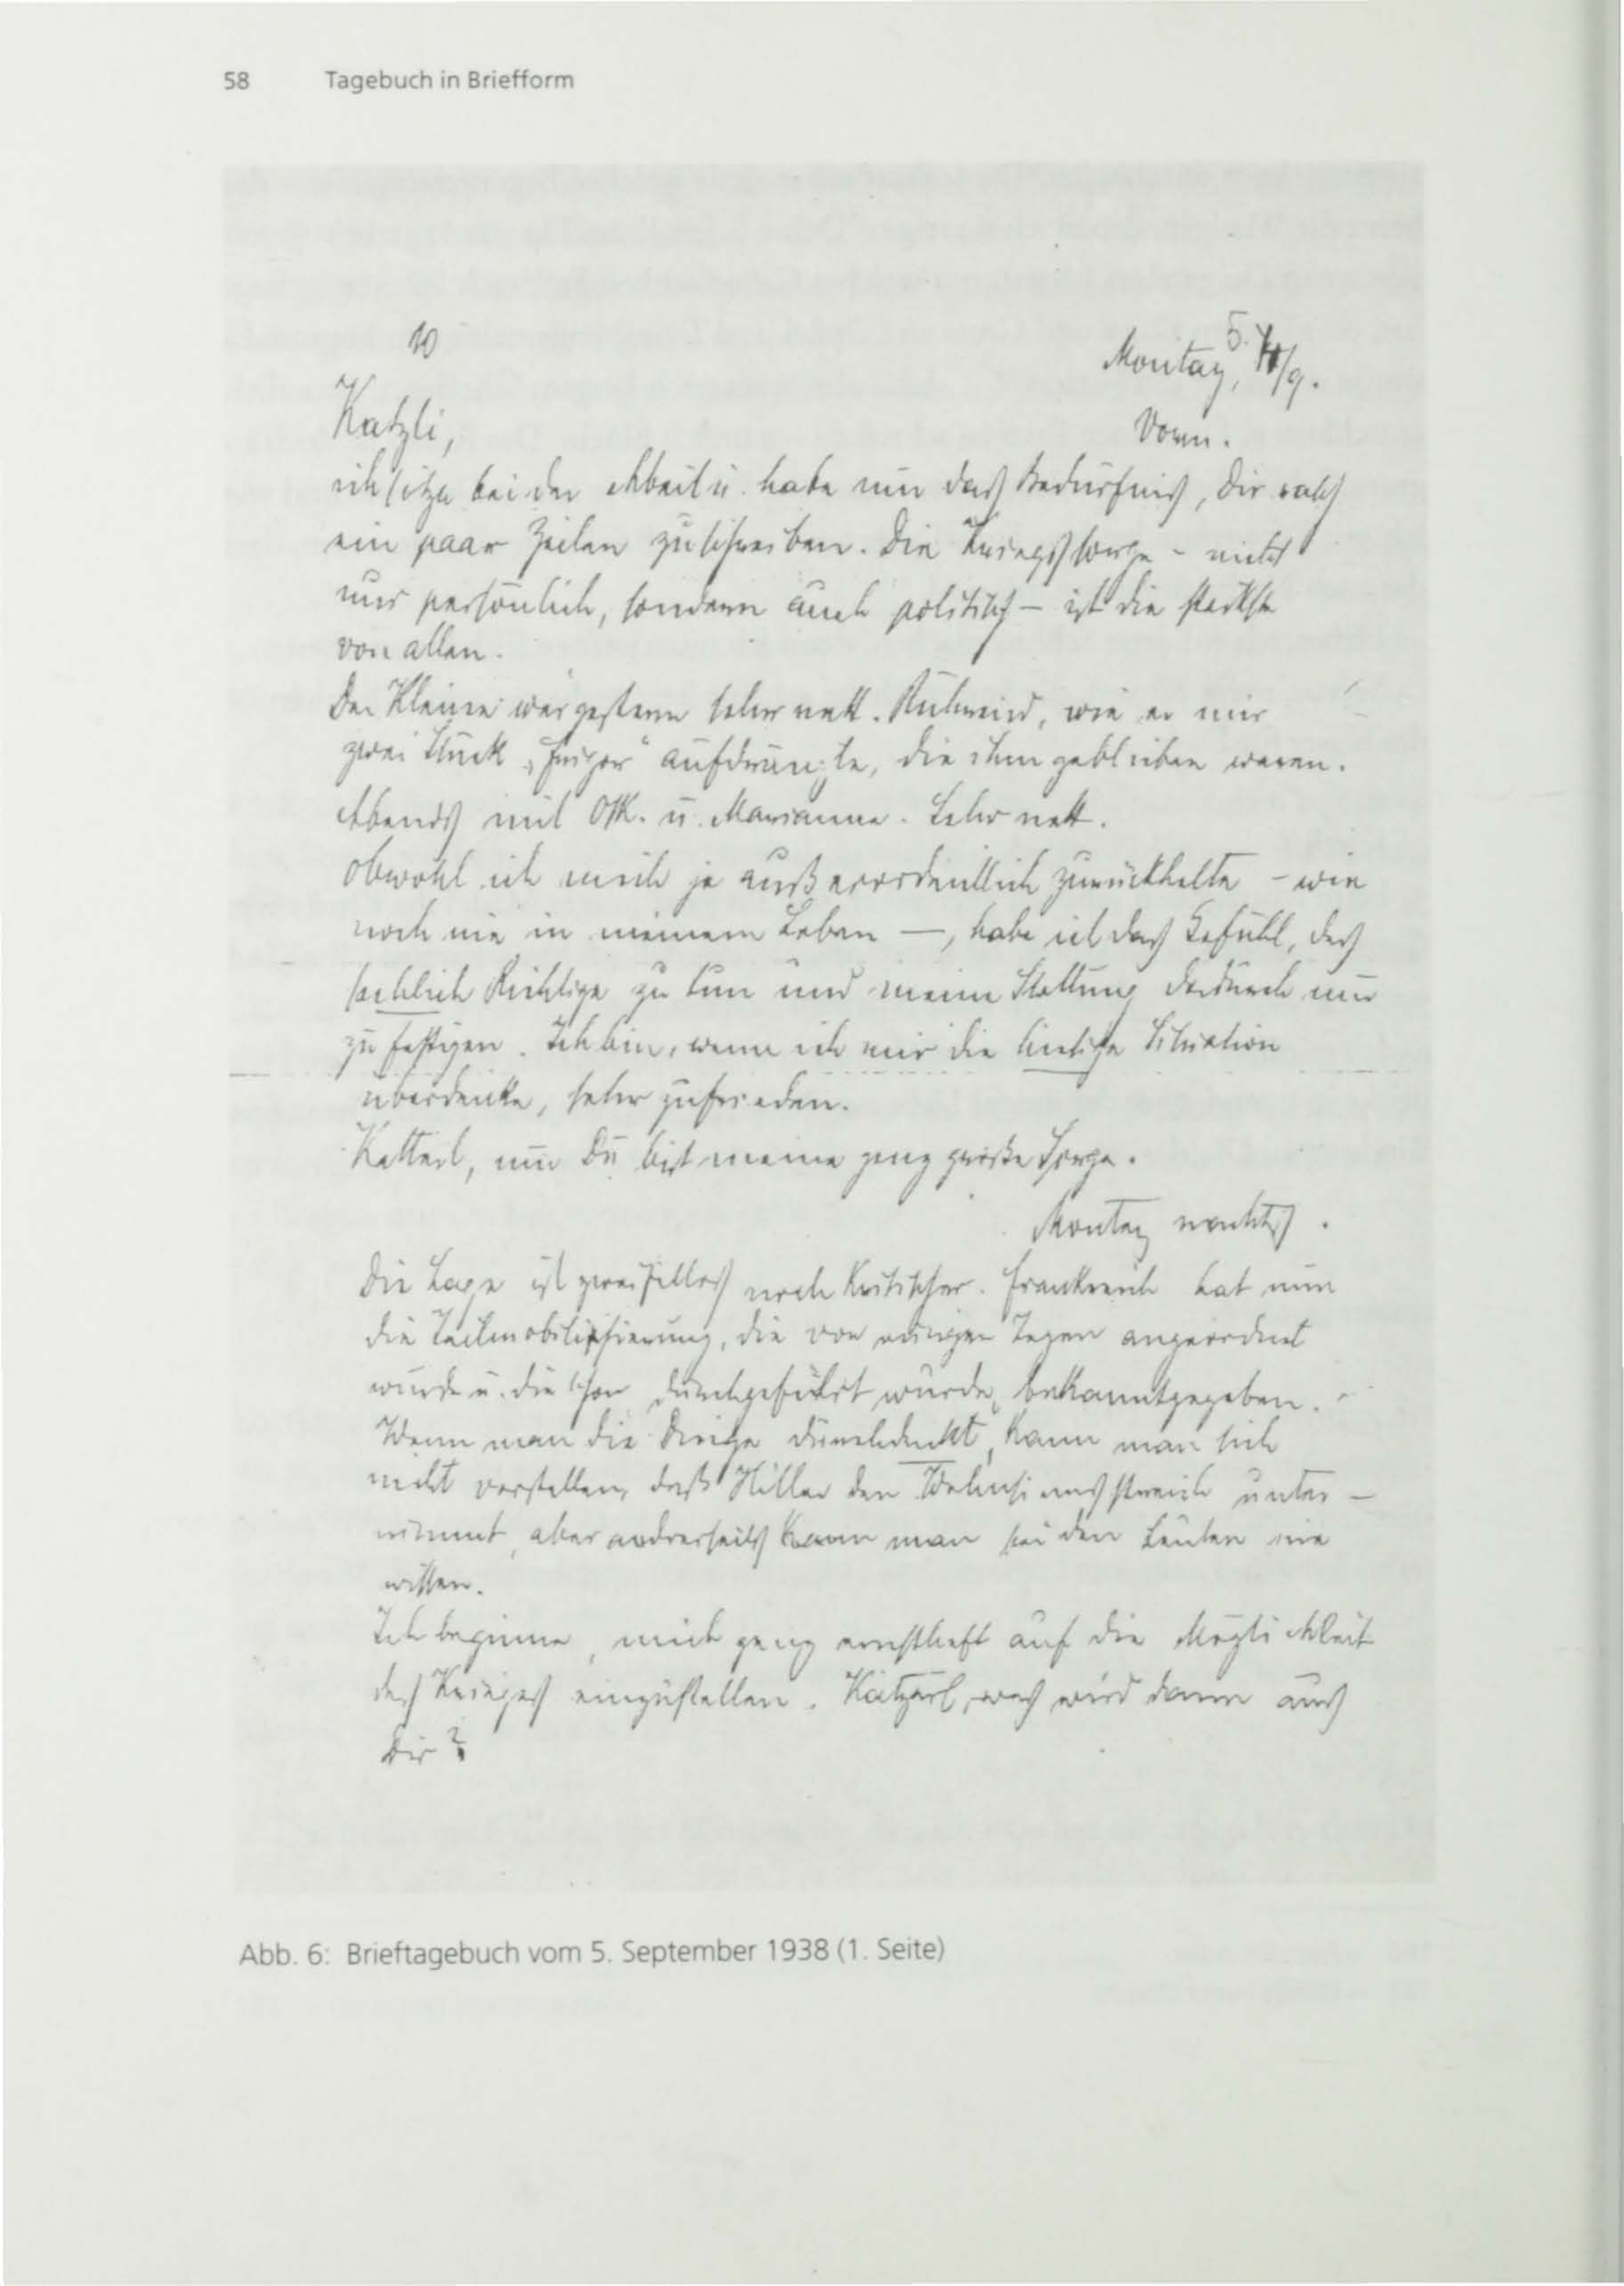 58 Tagebuch in Briefform
10
Montag, 5. /9.
Katzli,
Vorm.
ich sitze bei der Arbeit u. habe nun das Bedürfnis, Dir rasch
ein paar Zeilen zu schreiben. Die Kriegssorge – nicht
nur persönlich, sondern auch politisch – ist die stärkste
von allen.
Der Kleine war gestern sehr nett. Rührend, wie er mir
zwei Stück „ " aufdrängte, die ihm geblieben waren.
Abends mit Ossk. u. Marianne. Sehr nett.
Obwohl ich mich ja außerordentlich zurückhalte – wie
noch nie in meinem Leben –, habe ich das Gefühl, das
sachlich Richtige zu tun und meine Stellung dadurch nur
zu festigen. Ich bin, wenn ich mir die hiesige Situation
überdenke, sehr zufrieden.
Katterl, nur Du bist meine ganz große Sorge.
Montag nachts.
Die Lage ist zweifellos noch kritischer. Frankreich hat nun
die Teilmobilisierung, die vor einigen Tagen angeordnet
wurde u. die schon durchgeführt wurde, bekanntgegeben.
Wenn man die Dinge durchdenkt, kann man sich
nicht vorstellen, daß Hitler den Wahnsinnsstreich unter-
nimmt, aber andrerseits kann man bei den Leuten nie
wissen.
Ich beginne, mich ganz ernsthaft auf die Möglichkeit
des Krieges einzustellen. Katzerl, was wird dann aus
Dir?
Abb. 6: Brieftagebuch vom 5. September 1938 (1. Seite)